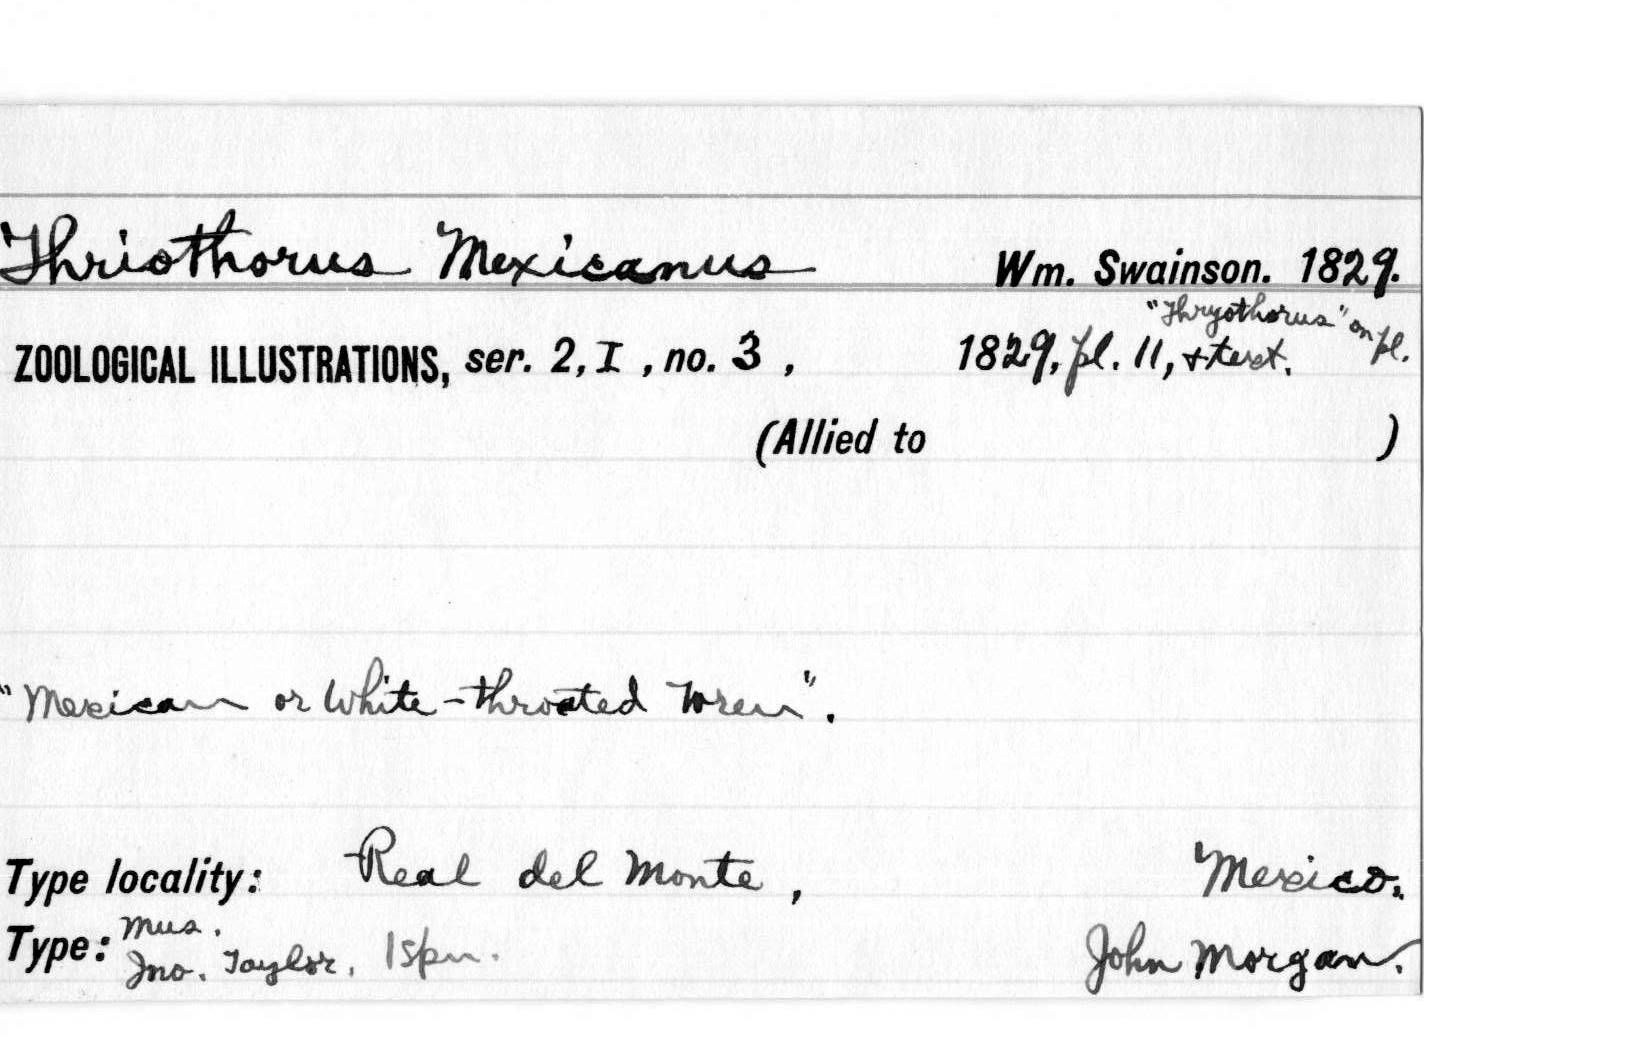 Thriothorus Mexicanus Wm. Swainson. 1829.
"Thryothorus" on pl.
ZOOLOGICAL ILLUSTRATIONS, ser. 2, I, no. 3, 1829, pl. 11, + text.
(Allied to )
"Mexican or White-throated Wren".
Type locality: Real del Monte, Mexico.
Type: Mus. Jno. Taylor, 1 spn. John Morgan.